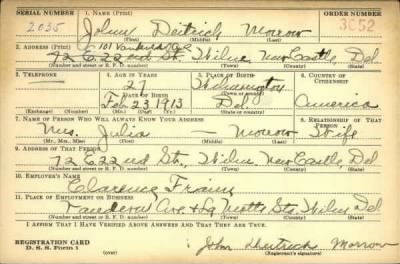 SERIAL NUMBER 1. NAME (Print) ORDER NUMBER
2035 John Deitrich Morrow 3052
(First) (Middle) (Last)
2. ADDRESS (Print)
72 E 22nd St. Wilm. New Castle Del
(Number and street or R. F. D. number) (Town) (County) (State)
3. TELEPHONE 4. AGE IN YEARS 5. PLACE OF BIRTH 6. COUNTRY OF CITIZENSHIP
27 Wilmington
DATE OF BIRTH (Town or county)
Feb 23 1913 Del. America
(Exchange) (Number) (Mo.) (Day) (Yr.) (State or country)
7. NAME OF PERSON WHO WILL ALWAYS KNOW YOUR ADDRESS 8. RELATIONSHIP OF THAT PERSON
Mrs. Julia — Morrow Wife
(Mr., Mrs., Miss) (First) (Middle) (Last)
9. ADDRESS OF THAT PERSON
72 E 22nd St. Wilm. New Castle Del
(Number and street or R. F. D. number) (Town) (County) (State)
10. EMPLOYER'S NAME
Clarence
11. PLACE OF EMPLOYMENT OR BUSINESS
Ave & Sts. Wilm Del
(Number and street or R. F. D. number) (Town) (County) (State)
I AFFIRM THAT I HAVE VERIFIED ABOVE ANSWERS AND THAT THEY ARE TRUE.
REGISTRATION CARD
D. S. S. Form 1 John Morrow
(over) (Registrant's signature)